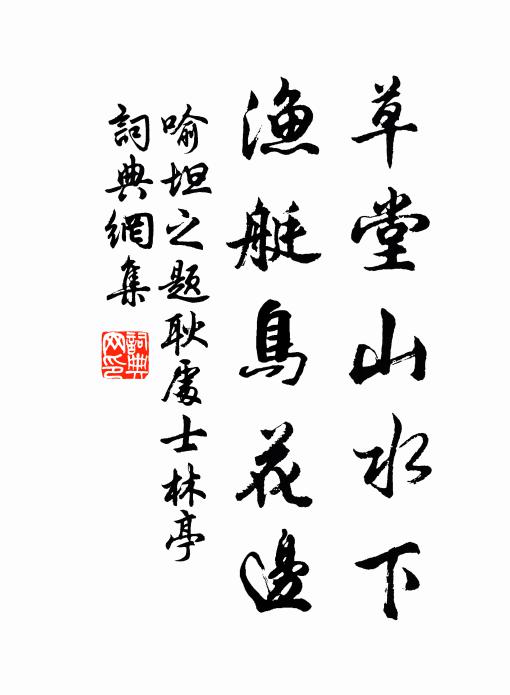 草堂山水下
漁艇鳥花邊
喻坦之題耿處士林亭
詞典網集
詞典網印